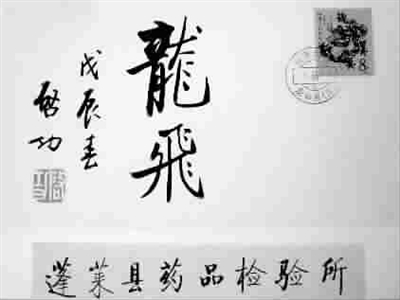 龍飛
戊辰春
啓功
蓬莱县药品检验所